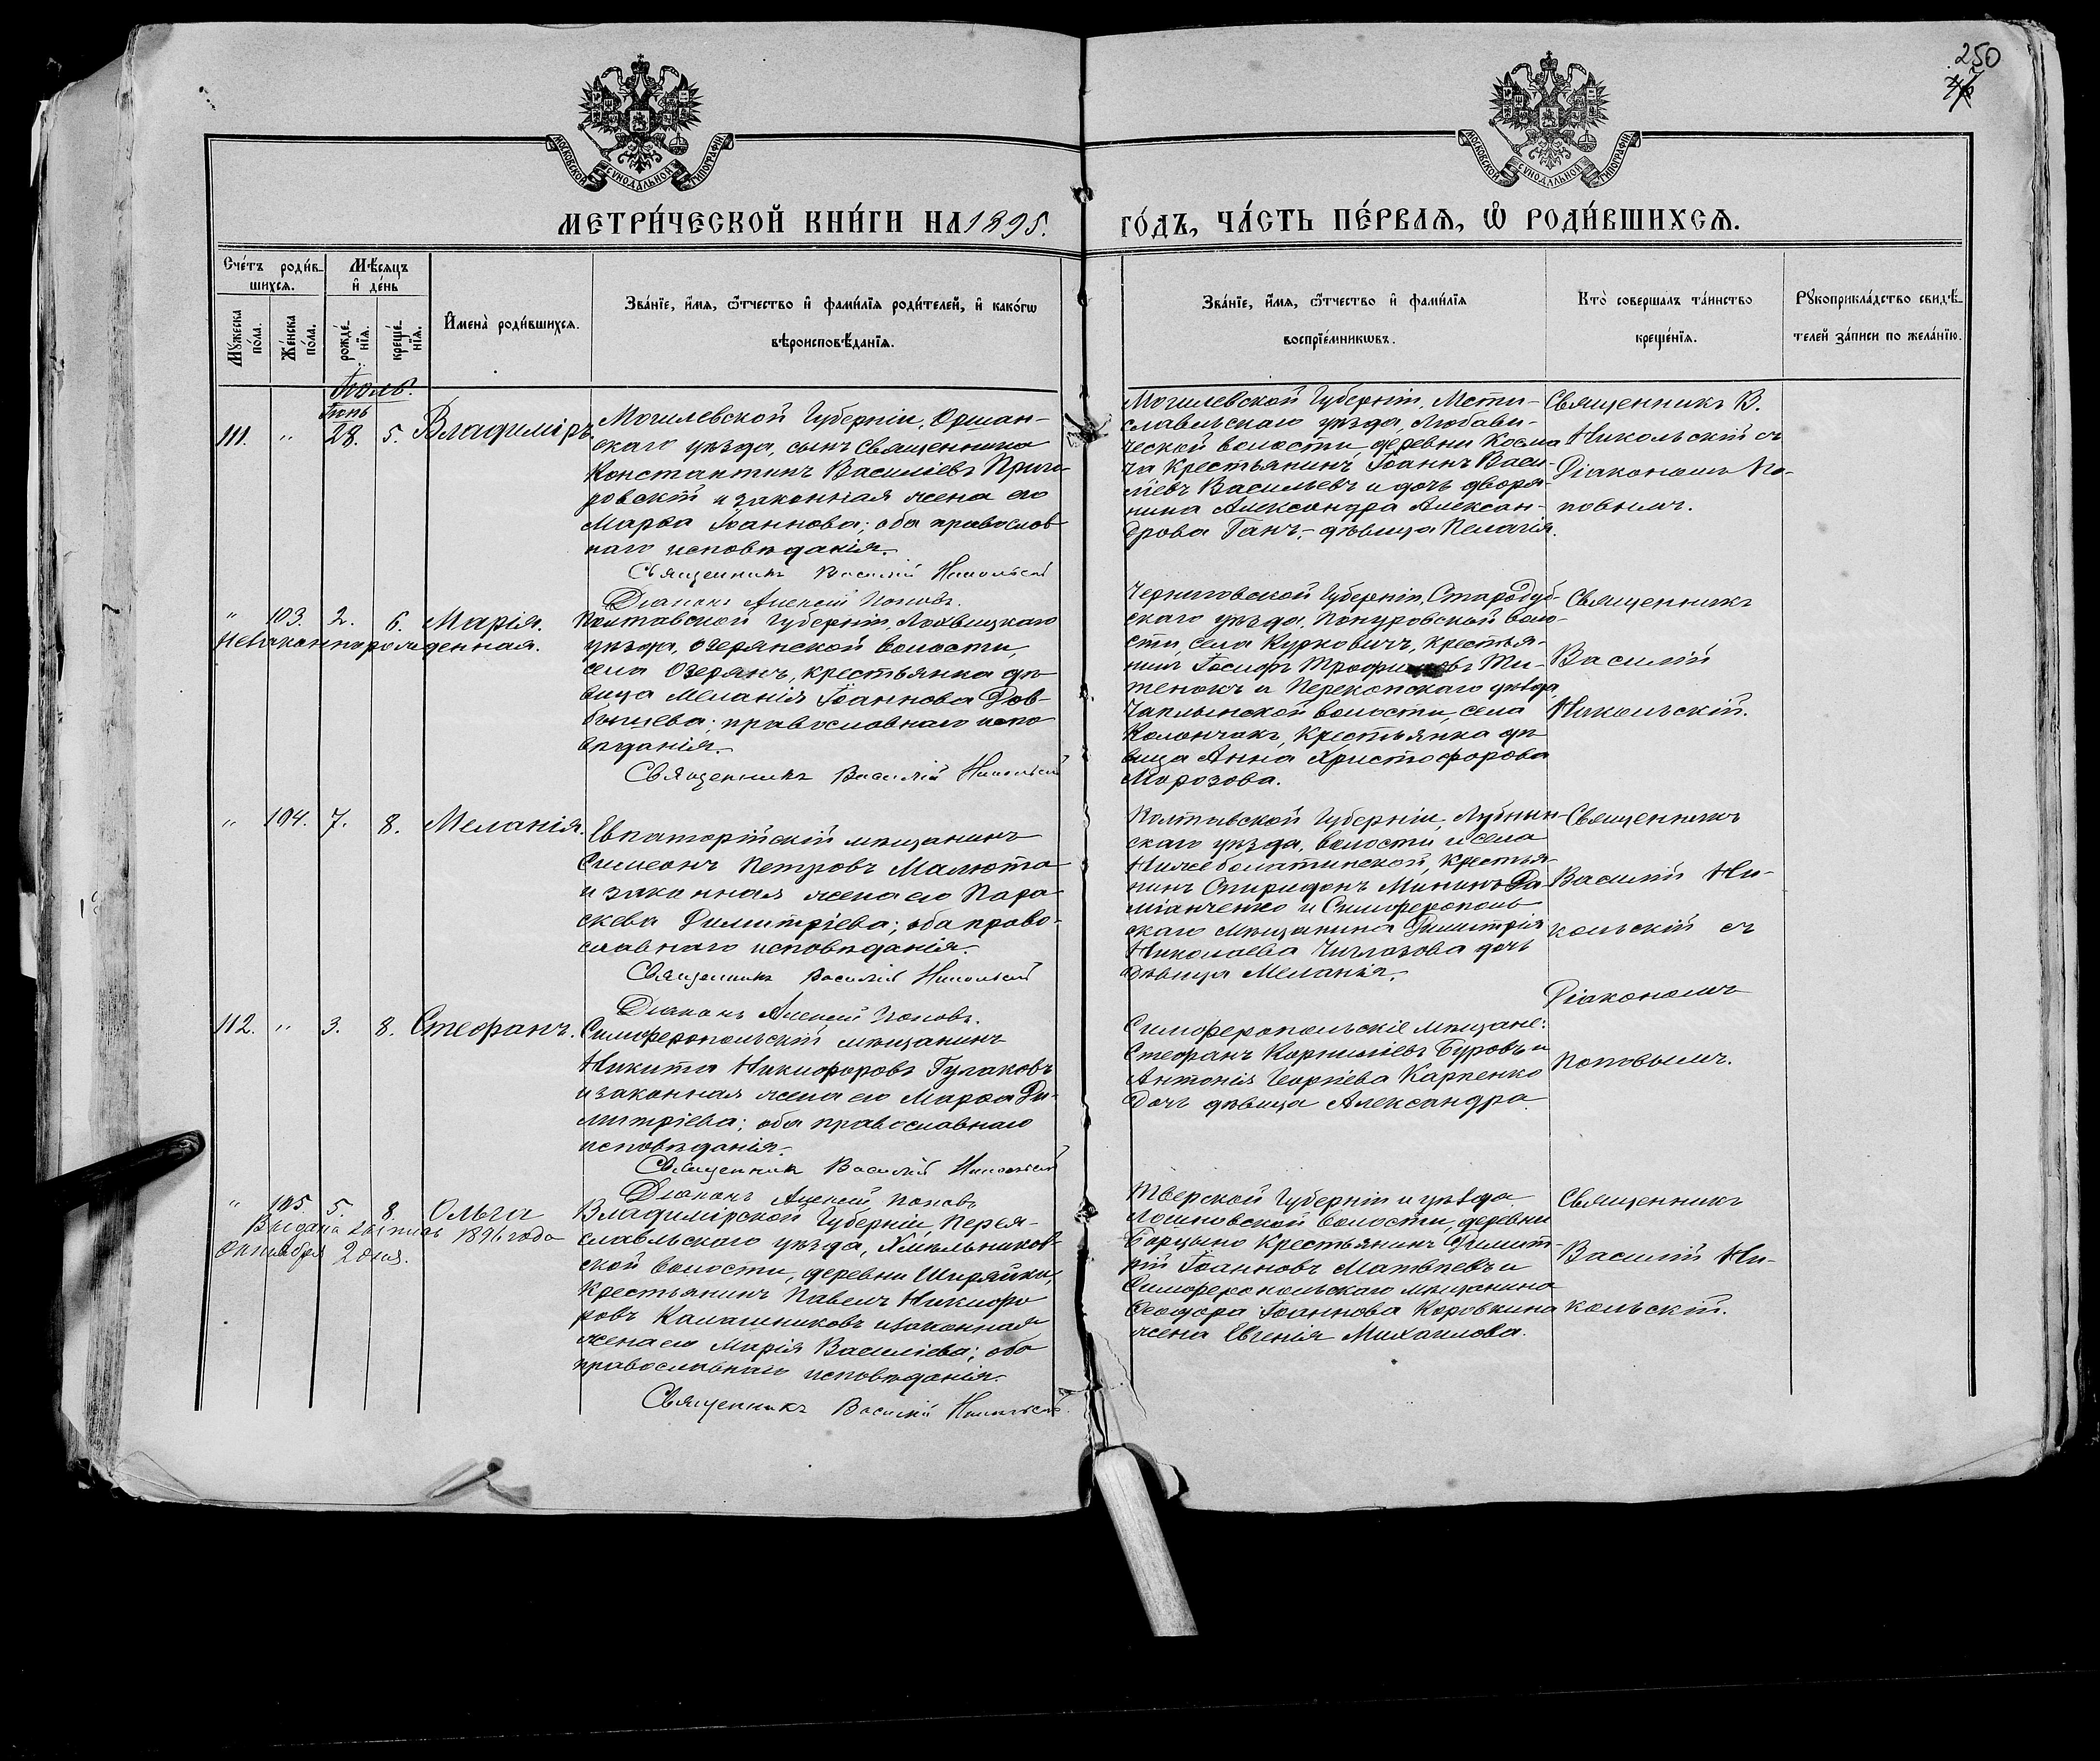 250
МОСКОВСКОЙ СѴНОДАЛЬНОЙ ТИПОГРАФІИ
МОСКОВСКОЙ СѴНОДАЛЬНОЙ ТИПОГРАФІИ
МЕТРИ́ЧЕСКОЙ КНИ́ГИ НА 1895.
ГО́ДЪ, ЧА́СТЬ ПЕ́РВАѦ, Ѡ҆ РОДИ́ВШИХСѦ.
Сче́тъ роди́в-
шихсѧ.
Мѣ́сѧцъ
и҆ де́нь
Мꙋ́жеска по́ла.
Же́нска по́ла.
рожде́-
нїѧ.
креще́-
нїѧ.
И҆мена̀ роди́вшихсѧ.
Зва́нїе, и҆́мѧ, ѻ҆́тчество и҆ фами́лїѧ роди́телей, и҆ како́гѡ
вѣроисповѣ́данїѧ.
Зва́нїе, и҆́мѧ, ѻ҆́тчество и҆ фами́лїѧ
воспрїе́мникѡвъ.
Кто̀ соверша́лъ та́инство
креще́нїѧ.
Рꙋкоприкла́дство свидѣ́-
телей за́писи по жела́нїю.
Іюль.
Іюнь
111. " 28. 5. Владиміръ.
Могилевской Губерніи, Оршан-
скаго уѣзда, сынъ Священника
Константинъ Василіевъ
ровскій и законная жена его
Марѳа Іоаннова; оба православ-
наго исповѣданія.
Священникъ Василій Никольскій
Діаконъ Алексій Поповъ.
Могилевской Губерніи, Мсти-
славльскаго уѣзда, Любави-
ческой волости, деревни
ча Крестьянинъ Іоаннъ Васи-
ліевъ Васильевъ и дочь дворя-
нина Александра Алексан-
дрова Ганъ, дѣвица Пелагія.
Священникъ В.
Никольскій съ
Діакономъ По-
повымъ.
" 103. 2. 6. Марія.
Незаконнорожденная.
Полтавской Губерніи, Лохвицкаго
уѣзда, Озерянской волости,
села Озерянъ, крестьянка дѣ-
вица Меланія Іоаннова Дов-
православнаго испо-
вѣданія.
Священникъ Василій Никольскій
Черниговской Губерніи, Стародуб-
скаго уѣзда, Понуровской воло-
сти, села Курковичъ, крестья-
нинъ Іосифъ Трофимовъ Ти-
тенокъ и Перекопскаго уѣзда,
Чаплынской волости, села
Колончакъ, крестьянка дѣ-
вица Анна Христофорова
Морозова.
Священникъ
Василій
Никольскій.
" 104. 7. 8. Меланія.
Евпаторійскій мѣщанинъ
Симеонъ Петровъ Малюта
и законная жена его Пара-
скева Димитріева; оба право-
славнаго исповѣданія.
Священникъ Василій Никольскій
Діаконъ Алексій Поповъ.
Полтавской Губерніи, Лубен-
скаго уѣзда, волости и села
крестья-
нинъ Спиридонъ Мининъ Да-
міанченко и Симферополь-
скаго мѣщанина Димитрія
Николаева дочь
дѣвица Меланія.
Священникъ
Василій Ни-
кольскій съ
Діакономъ
Поповымъ.
112. " 3. 8. Стефанъ.
Симферопольскій мѣщанинъ
Никита Никифоровъ Гулаковъ
и законная жена его Марѳа Ди-
митріева; оба православнаго
исповѣданія.
Священникъ Василій Никольскій
Діаконъ Алексій Поповъ
Симферопольскіе мѣщане:
Стефанъ Корниліевъ Буровъ и
Антонія Георгіева Карпенко
дочь дѣвица Александра.
" 105. 5. 8. Ольга
Выдана выпись 1896 года
Октября 2 дня.
Владимірской Губерніи, Перея-
славльскаго уѣзда, Хмѣльников-
ской волости, деревни Ширяйки,
Крестьянинъ Павелъ Никифо-
ровъ Калашниковъ и законная
жена его Марія Василіева; оба
православнаго исповѣданія.
Священникъ Василій Никольскій
Тверской Губерніи и уѣзда
волости, деревни
Крестьянинъ Димит-
рій Іоанновъ Матвѣевъ и
Симферопольскаго мѣщанина
Ѳеодора Іоаннова Коровкина
жена Евгенія Михаилова.
Священникъ
Василій Ни-
кольскій.